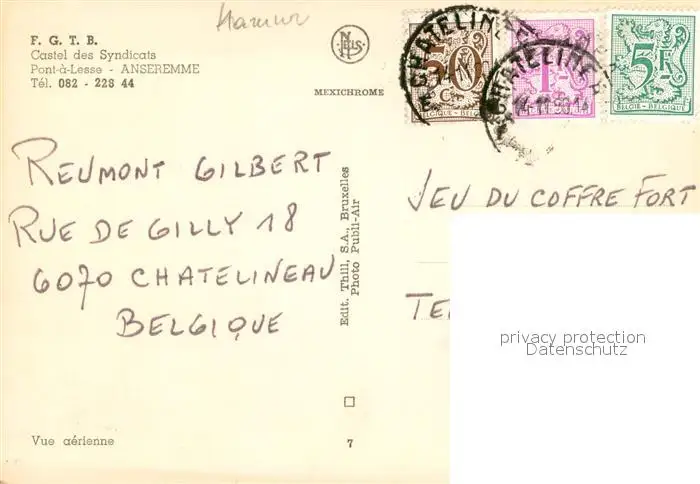 F. G. T. B.
Castel des Syndicats
Pont-à-Lesse - ANSEREMME
Tél. 082 - 228 44
NELS
MEXICHROME
CHATELINE
50
Cs
BELGIQUE - BELGIË
CHATELINE
1F
5F
BELGIË - BELGIQUE
REUMONT GILBERT
RUE DE GILLY 18
6070 CHATELINEAU
BELGIQUE
Edit. Thill, S.A., Bruxelles
Photo Publi-Air
JEU DU COFFRE FORT
TE
privacy protection
Datenschutz
Vue aérienne
7